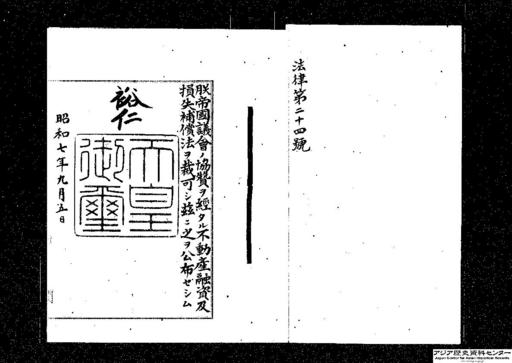 法律第二十四號
朕帝國議會ノ協贊ヲ經タル不動產融資及
損失補償法ヲ裁可シ茲ニ之ヲ公布セシム
裕仁
天皇
御璽
昭和七年九月五日
アジア歴史資料センター
Japan Center for Asian Historical Records